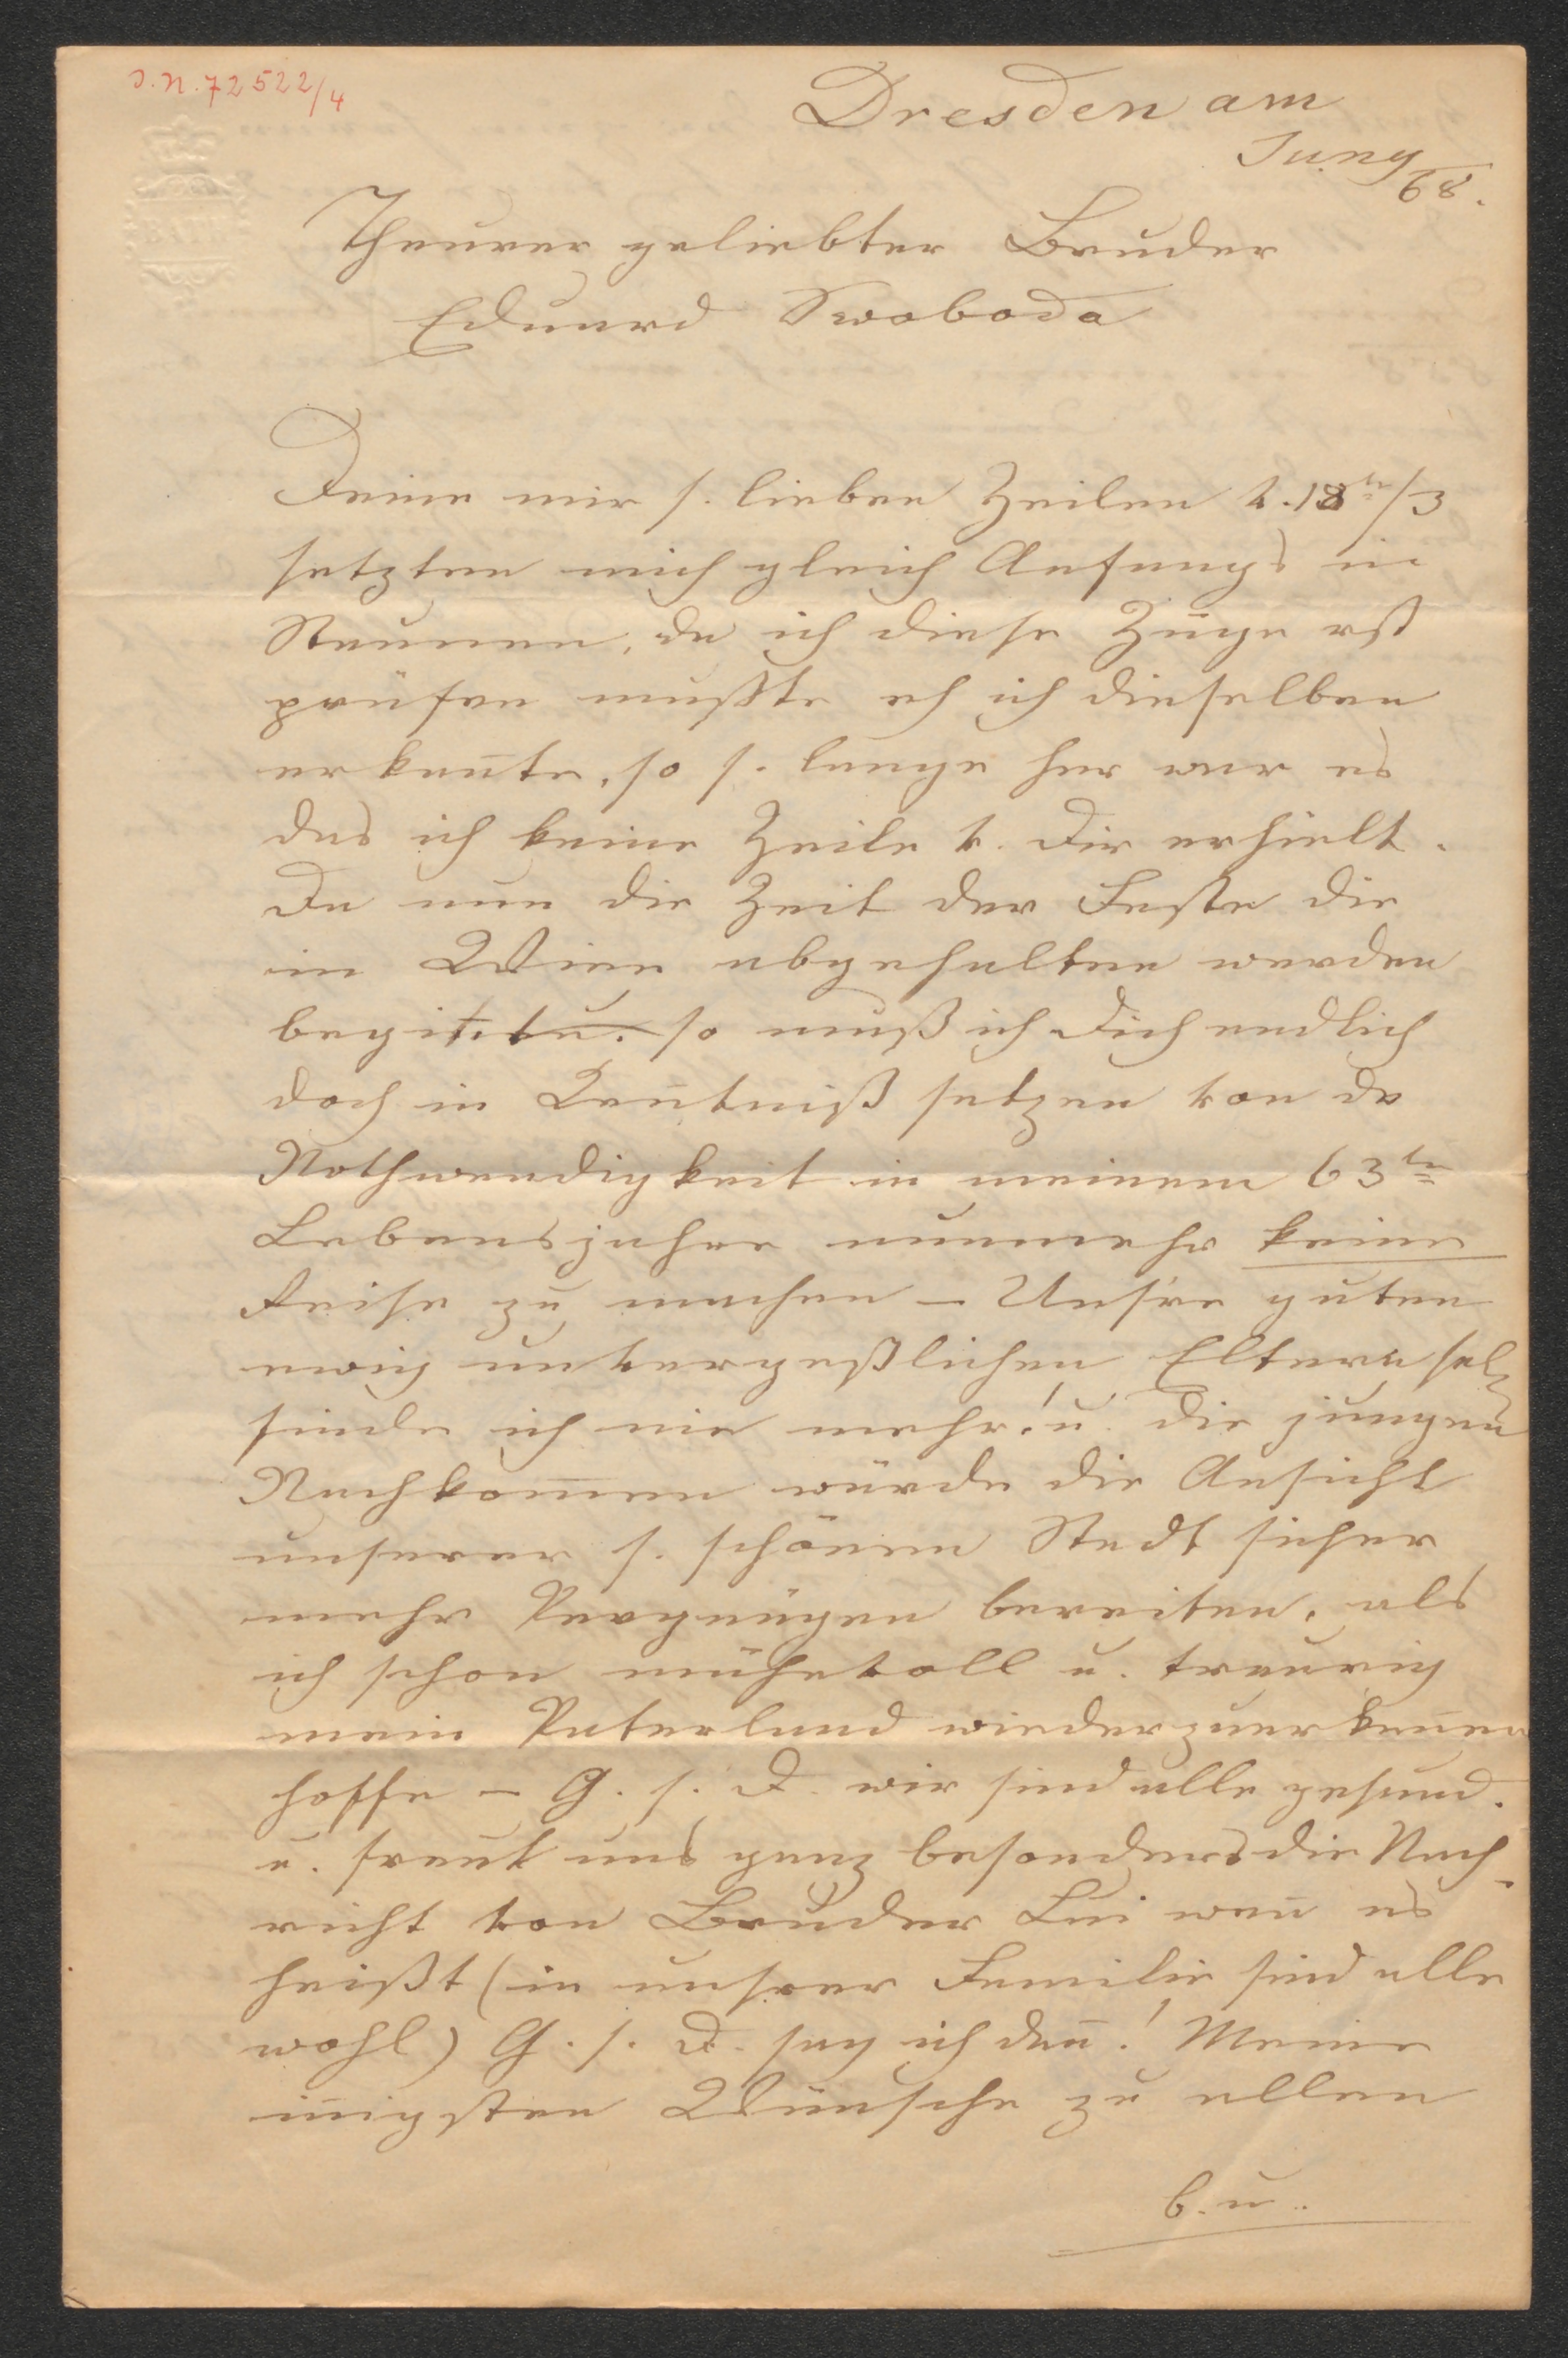 J.N. 72522/4
Dresden am
Juny
68.
Theurer geliebter Bruder
Eduard Swoboda
Deine mir s. lieben Zeilen v. 18tn/3
setzten mich gleich Anfangs in
Staunen, da ich diese Züge erst
prüfen mußte eh ich dieselben
erkan̄te, so s. lange her war es
das ich keine Zeile v. Dir erhielt.
Da nun die Zeit der Feste die
in Wien abgehalten werden
so muß ich Dich endlich
doch in Ken̄tniß setzen von de
Nothwendigkeit in meinem 63tn
Lebensjahre nunmehr keine
Reise zu machen – Uns're guten
ewig unvergeßlichen Eltern sel
finde ich nie mehr! u. die jungen
Nachkom̄en würde die Ansicht
unserer s. schönen Stadt sicher
mehr Vergnügen bereiten, als
ich schon mühevoll u. traurig
mein Vaterland wiederzuerken̄en
hoffe – G. s. D. wir sind alle gesund.
u. freut uns ganz besonders die Nach-
richt von Bruder Lui wen̄ es
heißt (in unsrer Familie sind alle
wohl) G. s. D. sag ich dan̄! Meine
in̄igsten Wünsche zu allen
b. u.